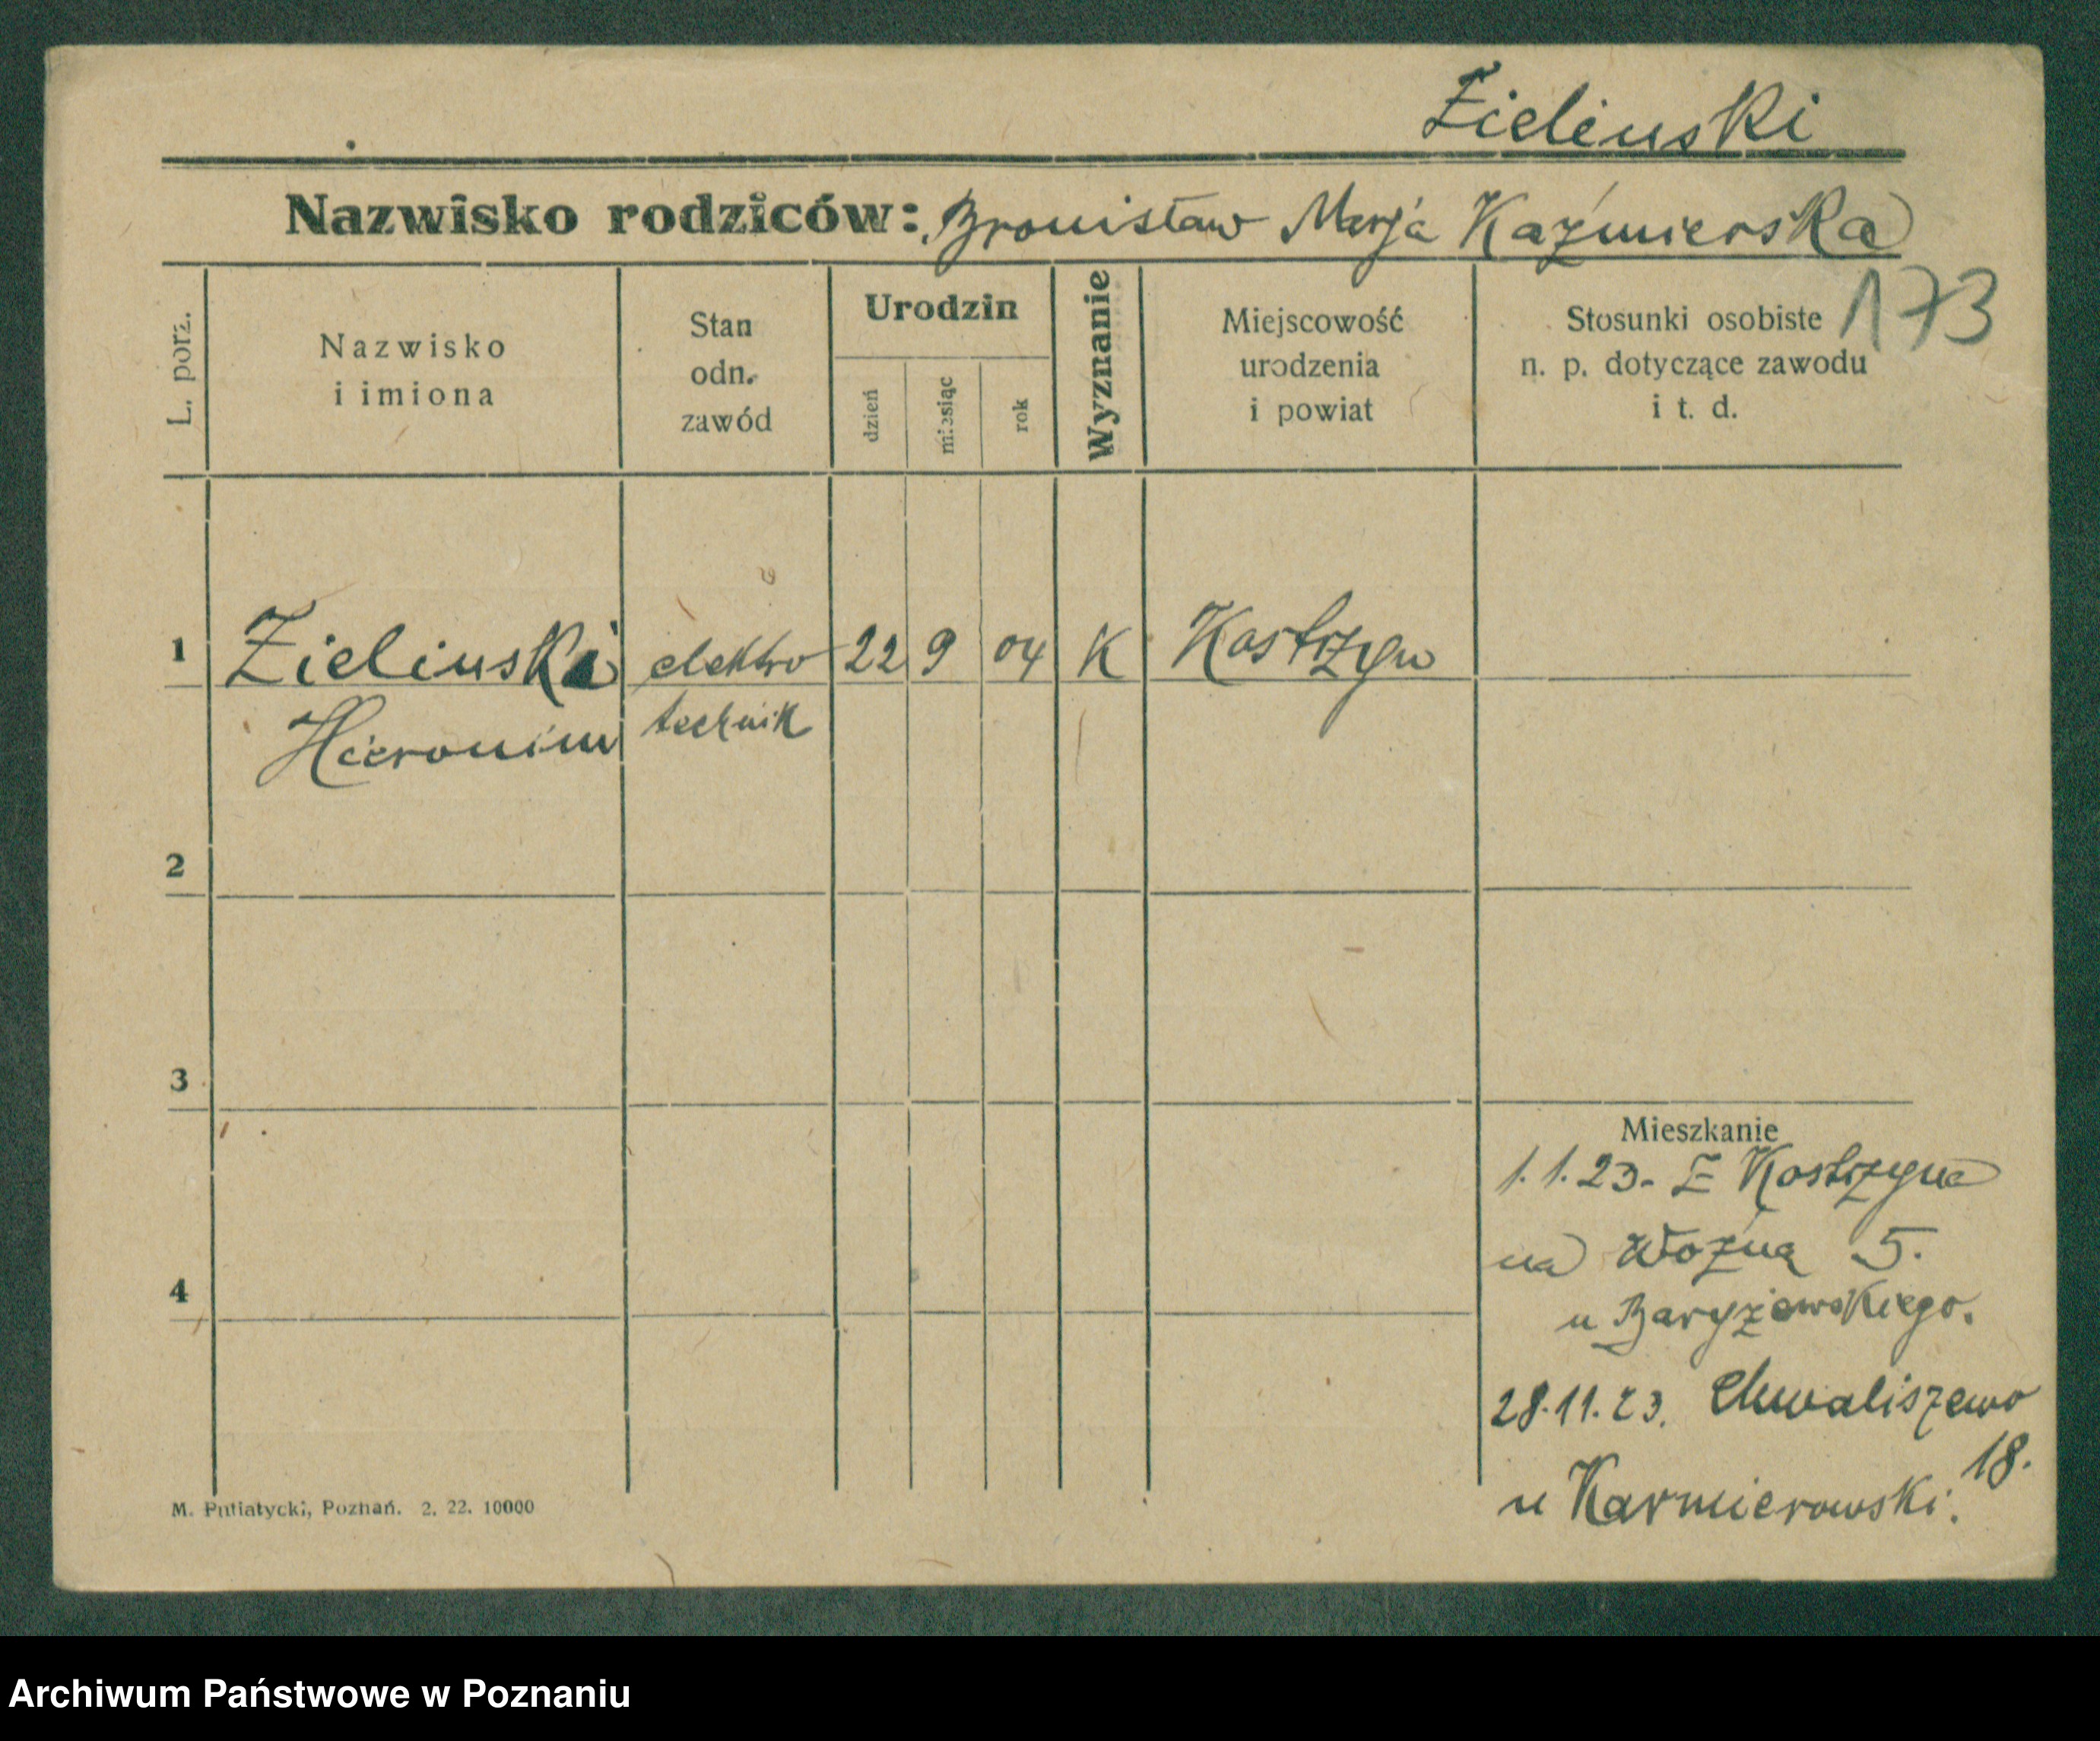 Zielinski
Nazwisko rodziców: Bronisław Marja Kaźmierska
173
L. porz.
Nazwisko
i imiona
Stan
odn.
zawód
Urodzin
dzień
miesiąc
rok
Wyznanie
Miejscowość
urodzenia
i powiat
Stosunki osobiste
n. p. dotyczące zawodu
i t. d.
1 Zielinski elektro 22 9 04 K Kostrzyn
Hieronim technik
2
3
4
Mieszkanie
1.1.23. Z Kostrzyna
na Woźną 5.
u Baryżewskiego.
28.11.23. Chwaliszewo
18.
u Karmierowski.
M. Putiatycki, Poznań. 2. 22. 10000
Archiwum Państwowe w Poznaniu